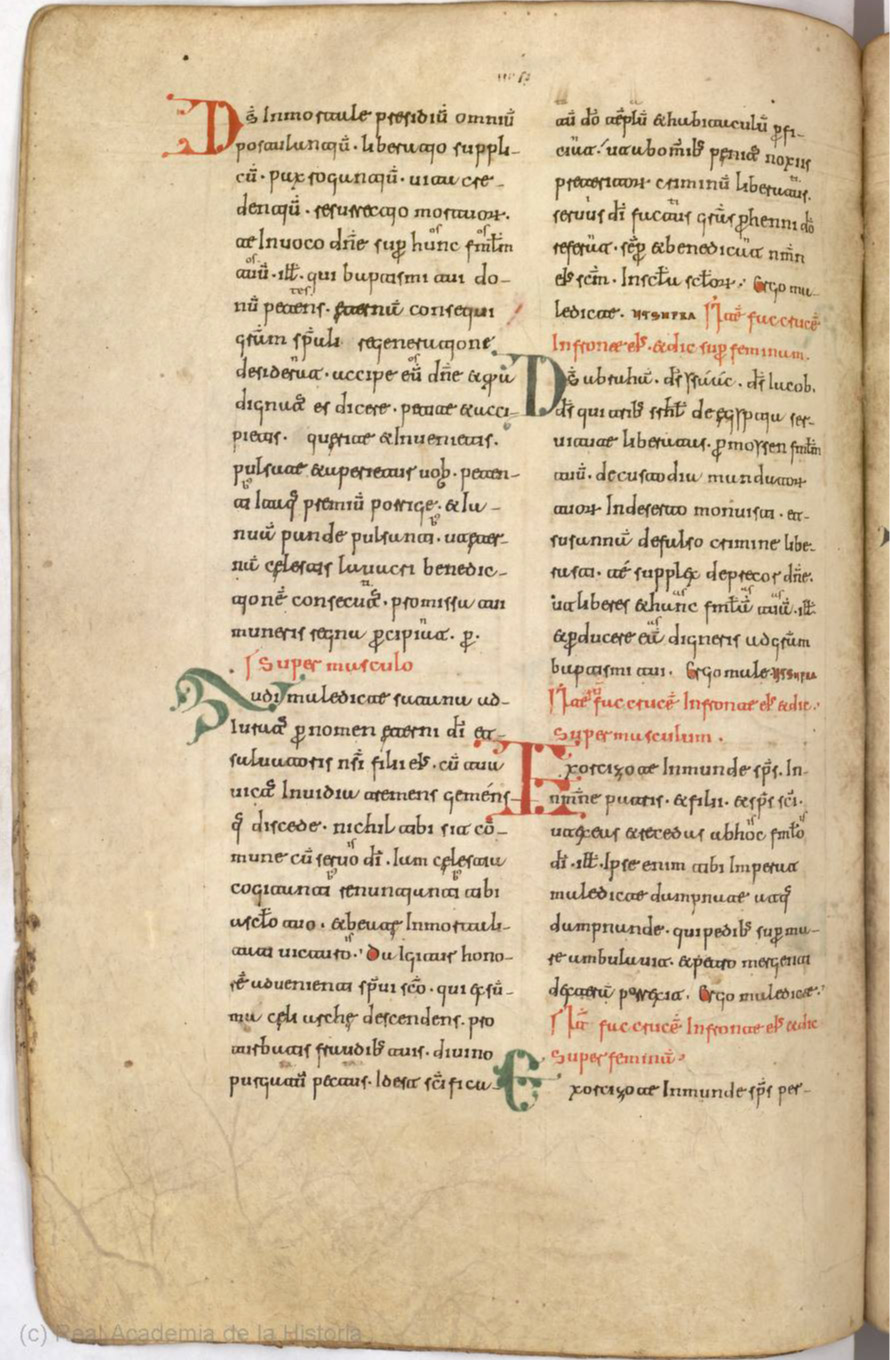 Ds̄ Inmortale presidiū omniū
postulantiū · liberatio suppli-
cū · pax rogantiū · uita cre-
dentiū · resurrectio mortuor ·
te Inuoco dn̄e sup̄ hunc fmłm
tuū · ill̄ · qui baptismi tui do-
nū petens · eternā consequi
grām sp̄ali regeneratione
desiderat · accipe eū dn̄e & q̄a
dignatˢ es dicere · petite & acci-
pietis · querite & Inuenietis ·
pulsate & aperietur uob · peten-
ti Itaq̄ premiū porrige · & Ia-
nuā pande pulsanti · ut eter-
nā celestis lauacri benedic-
tionē consecutˢ · promissa tui
muneris regna p̱cipiat · p̱ ·
Super masculo
Audi maledicte satana ad-
iuratˢ p̱ nomen eterni dī et
saluatoris nsī filii eiˢ · cū tua
uictˢ Inuidia tremens gemens-
q̄ discede · nichil tibi sit cō-
mune cū seruo dī · Iam celestia
cogitanti renuntianti tibi
ac scło tuo · & beate Inmortali-
tati uicturo · Da Igitur hono-
rē aduenienti sp̄ui scō · qui ex sū-
ma celi arche descendens · pro
turbatis fraudibˢ tuis · diuino
purgatū pectus · Idest scīficatū
tū dō tēplū & habitaculū p̱fi-
ciat · ut ab omībˢ penitˢ noxiis
preteritor criminū liberatus ·
seruus dī factus grās p̱henni dō
referat · sēp̱ & benedicat nmn̄
eiˢ scm̄ · In scła sctor · Ergo ma-
ledicte · ut supra Itē fac crucē
In fronte eiˢ · & dic sup̱ feminam ·
Ds̄ abrahā · ds̄ ysaac · ds̄ Iacob ·
ds̄ qui tribˢ srhł de egyptia ser-
uitute liberatis · p̱ moysen fmłm
tuū · de custodia mandator
tuor In deserto monuisti · et
susannā de falso crimine libe-
rasti · te supplex deprecor dn̄e ·
ut liberes & hanc fmłā tuā · ill̄
& p̱ducere eā digneris ad grām
baptismi tui · Ergo male ut supra
Itē fac crucē In fronte eiˢ & dic ·
super masculum ·
Exorcizo te Inmunde sp̄s · In
nmn̄e patris · & filii · & sp̄s scī ·
ut exeas & recedas ab hoc fmło
dī · ill̄ · Ipse enim tibi Imperat
maledicte dampnate atq̄
dampnande · qui pedibˢ sup̱ ma-
re ambulauit · & petro mergenti
dexterā porrexit · Ergo maledicte ·
Itē fac crucē In fronte eiˢ & dic
super feminā ·
Exorcizo te Inmunde sp̄s per-
(c) Real Academia de la Historia